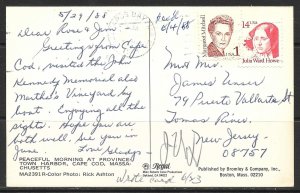 5/29/88
Dear Rose & Jim,
Greetings from Cape
Cod, visited the John
Kennedy Memorial also
Martha's Vineyard by
boat. Enjoying all the
sights. Hope you are
both well. See you in
June. Love Gladys
PEACEFUL MORNING AT PROVINCE-
TOWN HARBOR, CAPE COD, MASSA-
CHUSETTS
MA2391 R-Color Photo: Rick Ashton
6/4/88
Margaret Mitchell
USA 1
14 USA
Julia Ward Howe
Mr + Mrs.
James
79 Puerto Vallarta St
Toms River
New Jersey
08757
Published by Bromley & Company, Inc.
Boston, Mass. 02210
Write card 6/23